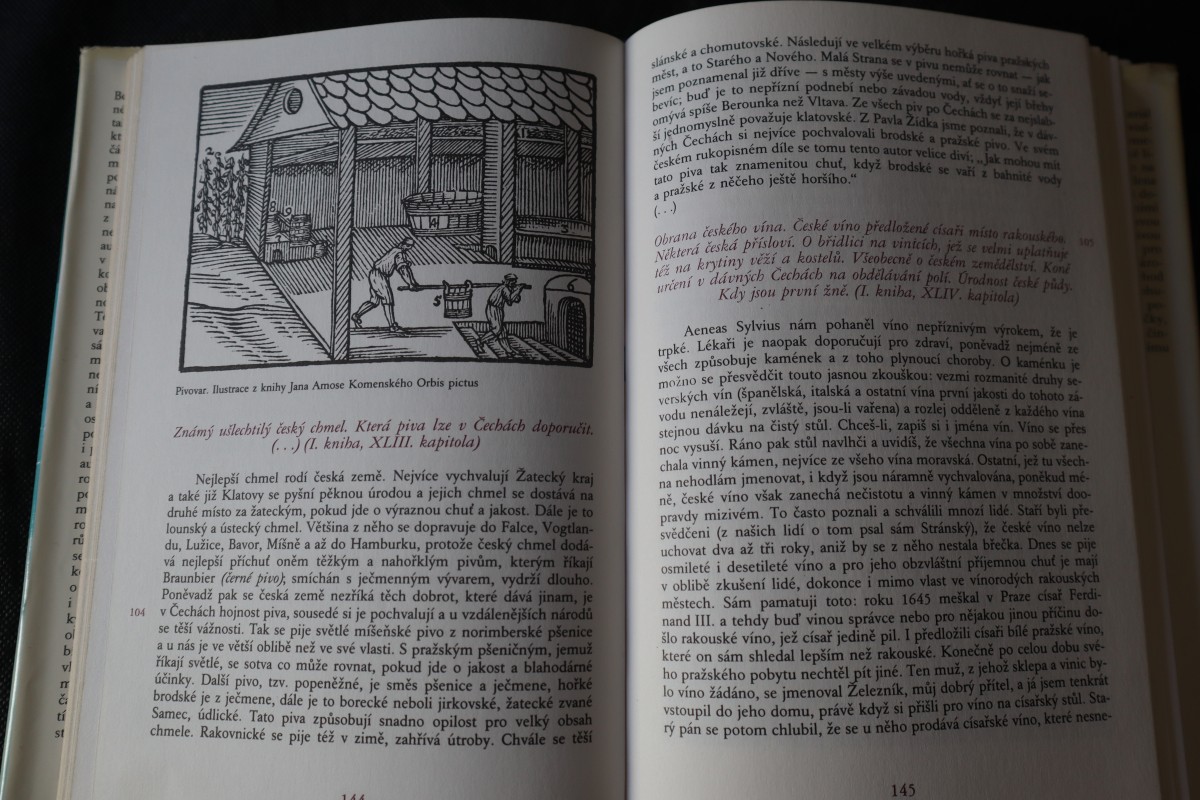 14
3
5
6
Pivovar. Ilustrace z knihy Jana Amose Komenského Orbis pictus
Známý ušlechtilý český chmel. Která piva lze v Čechách doporučit.
(. . .) (I. kniha, XLIII. kapitola)
Nejlepší chmel rodí česká země. Nejvíce vychvalují Žatecký kraj
a také již Klatovy se pyšní pěknou úrodou a jejich chmel se dostává na
druhé místo za žateckým, pokud jde o výraznou chuť a jakost. Dále je to
lounský a ústecký chmel. Většina z něho se dopravuje do Falce, Vogtlan-
du, Lužice, Bavor, Míšně a až do Hamburku, protože český chmel dodá-
vá nejlepší příchuť oněm těžkým a nahořklým pivům, kterým říkají
Braunbier (černé pivo); smíchán s ječmenným vývarem, vydrží dlouho.
Poněvadž pak se česká země nezříká těch dobrot, které dává jinam, je
104 v Čechách hojnost piva, sousedé si je pochvalují a u vzdálenějších národů
se těší vážnosti. Tak se pije světlé míšeňské pivo z norimberské pšenice
a u nás je ve větší oblibě než ve své vlasti. S pražským pšeničným, jemuž
říkají světlé, se sotva co může rovnat, pokud jde o jakost a blahodárné
účinky. Další pivo, tzv. popeněžné, je směs pšenice a ječmene, hořké
brodské je z ječmene, dále je to borecké neboli jirkovské, žatecké zvané
Samec, údlické. Tato piva způsobují snadno opilost pro velký obsah
chmele. Rakovnické se pije též v zimě, zahřívá útroby. Chvále se těší
144
slánské a chomutovské. Následují ve velkém výběru hořká piva pražských
měst, a to Starého a Nového. Malá Strana se v pivu nemůže rovnat — jak
jsem poznamenal již dříve — s městy výše uvedenými, ať se o to snaží se-
bevíc; buď je to nepřízní podnebí nebo závadou vody, vždyť její břehy
omývá spíše Berounka než Vltava. Ze všech piv po Čechách se za nejslab-
ší jednomyslně považuje klatovské. Z Pavla Žídka jsme poznali, že v dáv-
ných Čechách si nejvíce pochvalovali brodské a pražské pivo. Ve svém
českém rukopisném díle se tomu tento autor velice diví: „Jak mohou mít
tato piva tak znamenitou chuť, když brodské se vaří z bahnité vody
a pražské z něčeho ještě horšího.“
(. . .)
Obrana českého vína. České víno předložené císaři místo rakouského. 105
Některá česká přísloví. O břidlici na vinicích, jež se velmi uplatňuje
též na krytiny věží a kostelů. Všeobecně o českém zemědělství. Koně
určení v dávných Čechách na obdělávání polí. Úrodnost české půdy.
Kdy jsou první žně. (I. kniha, XLIV. kapitola)
Aeneas Sylvius nám pohaněl víno nepříznivým výrokem, že je
trpké. Lékaři je naopak doporučují pro zdraví, poněvadž nejméně ze
všech způsobuje kamének a z toho plynoucí choroby. O kaménku je
možno se přesvědčit touto jasnou zkouškou: vezmi rozmanité druhy se-
verských vín (španělská, italská a ostatní vína první jakosti do tohoto zá-
vodu nenáležejí, zvláště, jsou-li vařena) a rozlej odděleně z každého vína
stejnou dávku na čistý stůl. Chceš-li, zapiš si i jména vín. Víno se přes
noc vysuší. Ráno pak stůl navlhči a uvidíš, že všechna vína po sobě zane-
chala vinný kámen, nejvíce ze všeho vína moravská. Ostatní, jež tu všech-
na nehodlám jmenovat, i když jsou náramně vychvalována, poněkud mé-
ně, české víno však zanechá nečistotu a vinný kámen v množství doo-
pravdy mizivém. To často poznali a schválili mnozí lidé. Staří byli pře-
svědčeni (z našich lidí o tom psal sám Stránský), že české víno nelze
uchovat dva až tři roky, aniž by se z něho nestala břečka. Dnes se pije
osmileté i desetileté víno a pro jeho obzvláštní příjemnou chuť je mají
v oblibě zkušení lidé, dokonce i mimo vlast ve vínorodých rakouských
městech. Sám pamatuji toto: roku 1645 meškal v Praze císař Ferdi-
nand III. a tehdy buď vinou správce nebo pro nějakou jinou příčinu do-
šlo rakouské víno, jež císař jedině pil. I předložili císaři bílé pražské víno,
které on sám shledal lepším než rakouské. Konečně po celou dobu své-
ho pražského pobytu nechtěl pít jiné. Ten muž, z jehož sklepa a vinic by-
lo víno žádáno, se jmenoval Železník, můj dobrý přítel, a já jsem tenkrát
vstoupil do jeho domu, právě když si přišli pro víno na císařský stůl. Sta-
rý pán se potom chlubil, že se u něho prodává císařské víno, které nesne-
145